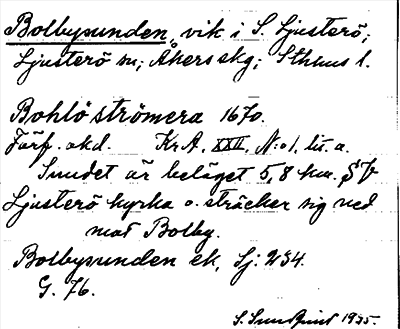 Bolbysunden, vik i S. Ljusterö;
Ljusterö sn; Åkers skg; Sthlms l.
Bohlö strömera 1670.
Förf. okd. Kr A, XXII, N:o 1, lit. a.
Sundet är beläget 5,8 km. SV
Ljusterö kyrka o. sträcker sig ned
mot Bolby.
Bolbysunden ek, Sj: 234.
G. 76.
S. 1935.